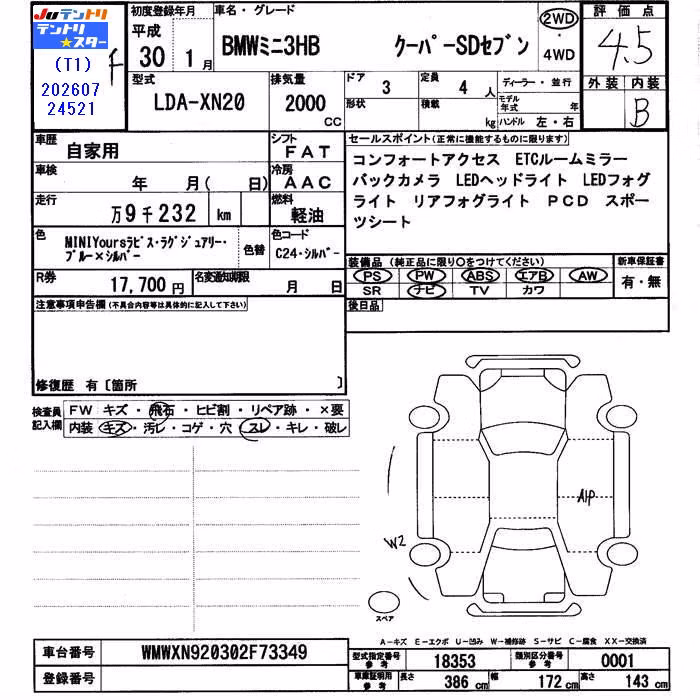 Juテントリ
テントリ★スター
(T1)
202607
24521
初度登録年月
平成
30年 1月
車名・グレード
BMWミニ3HB クーパーSDセブン
2WD
・
4WD
評価点
4.5
外装 内装
B
型式
LDA-XN20
排気量
2000
CC
ドア 3
形状
定員 4 人
積載 kg
ディーラー・並行
モデル年式 年
ハンドル 左・右
車歴 自家用
シフト FAT
車検 年 月( 日)
冷房 AAC
走行 万9千232 km
燃料 軽油
色
MINIYoursラピス・ラグジュアリー・
ブルー×シルバー
色替
色コード
C24・シルバー
R券 17,700円
名変通知期限 月 日
セールスポイント(正常に機能するものに限ります)
コンフォートアクセス ETCルームミラー
バックカメラ LEDヘッドライト LEDフォグ
ライト リアフォグライト PCD スポー
ツシート
装備品(純正品に限り○をつけてください)
新車保証書
PS PW ABS エアB AW
SR ナビ TV カワ
有・無
後日品
注意事項申告欄(不具合内容等は具体的に記入して下さい)
修復歴 有〔箇所 〕
検査員
記入欄
FW キズ・飛石・ヒビ割・リペア跡・×要
内装 キズ・汚レ・コゲ・穴・スレ・キレ・破レ
A1P
W2
スペア
A−キズ E−エクボ U−凹み W−補修跡 S−サビ C−腐食 XX−交換済
車台番号 WMWXN920302F73349
登録番号
型式指定番号
参考
18353
類別区分番号
参考
0001
車庫証明用
参考
長さ 386 cm 幅 172 cm 高さ 143 cm